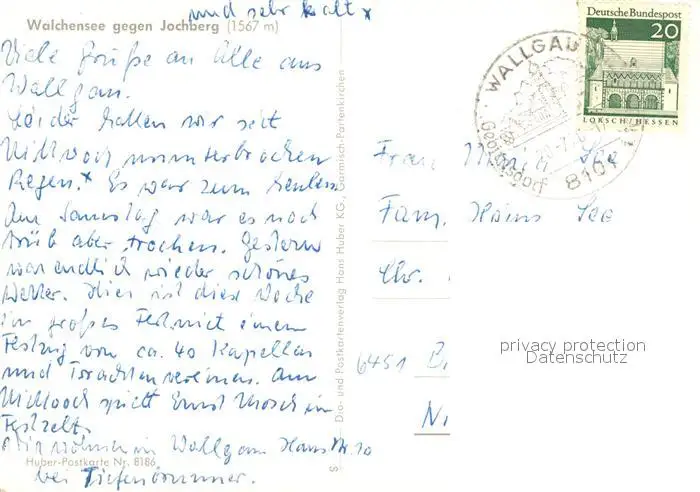 und sehr kalt x
Walchensee gegen Jochberg (1567 m)
Viele Grüße an Alle aus
Wallgau.
Leider hatten wir seit
Mittwoch ununterbrochen
Regen.x Es war zum heulen
Am Samstag war es noch
trüb aber trocken. Gestern
war endlich wieder schönes
Wetter. Hier ist diese Woche
ein großes Fest mit einem
Festzug von ca. 40 Kapellen
und Trachtenvereinen. Am
Mittwoch spielt Ernst Mosch im
Festzelt.
Wir wohnen in Wallgau Haus Nr. 10
bei Tiefenbrunner.
Huber-Postkarte Nr. 8186
Dia- und Postkartenverlag Hans Huber KG., Garmisch-Partenkirchen
Deutsche Bundespost
20
LORSCH/HESSEN
WALLGAU
Gebirgsdorf
8101
Frau
Fam. Heinz
Chr.
6451 B
N
privacy protection
Datenschutz